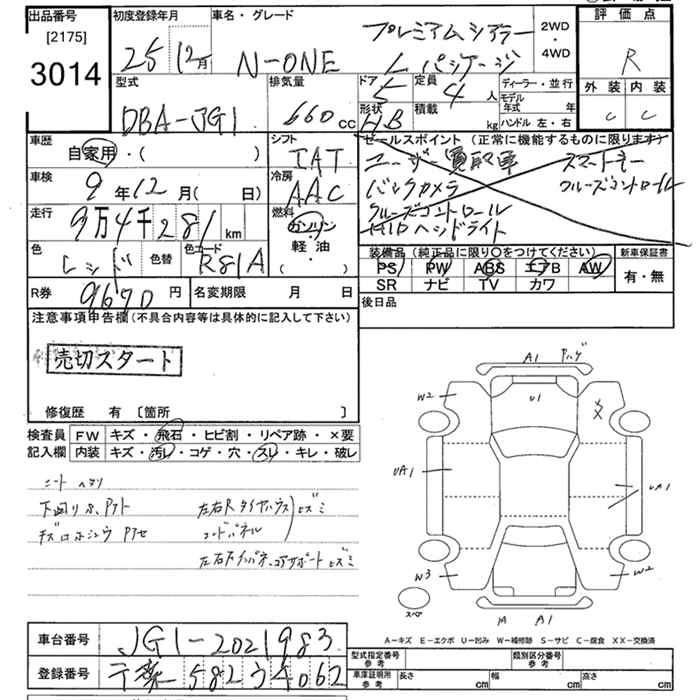 出品番号
[2175]
3014
初度登録年月
25 12月
車名・グレード
プレミアムツアラー
N-ONE L パッケージ
2WD
・
4WD
評価点
R
外装 内装
C C
型式
DBA-JG1
排気量
660 cc
ドア 5
形状 HB
定員 4 人
積載 kg
ディーラー・並行
モデル年式 年
ハンドル 左・右
車歴
自家用・( )
シフト
IAT
セールスポイント (正常に機能するものに限ります)
ユーザー買取車 スマートキー
バックカメラ クルーズコントロール
クルーズコントロール
HIDヘッドライト
車検
9年12月( 日)
冷房
AAC
走行
9万4千281 km
燃料
ガソリン
軽・油
( ・ )
色
レッド
色替
色カード
R81A
装備品 (純正品に限り○をつけてください)
PS PW ABS エアB AW
SR ナビ TV カワ
新車保証書
有・無
R券
9670円
名変期限 月 日
後日品
注意事項申告欄(不具合内容等は具体的に記入して下さい)
売切スタート
修復歴 有 [箇所 ]
検査員 FW キズ・飛石・ヒビ割・リペア跡・×要
記入欄 内装 キズ・汚レ・コゲ・穴・スレ・キレ・破レ
A1
W2
U1
UA1
UA1
W3
W2
スペア
A1
シートヘタリ
下回りサビ
左右Rタイヤハウス ヒズミ
コードパネル
左右 コアサポートヒズミ
A-キズ E-エクボ U-凹み W-補修跡 S-サビ C-腐食 XX-交換済
車台番号
JG1-2021983
登録番号
千葉 582 す 4062
型式指定番号
参考
類別区分番号
参考
車庫証明所
参考
長さ cm 幅 cm 高さ cm